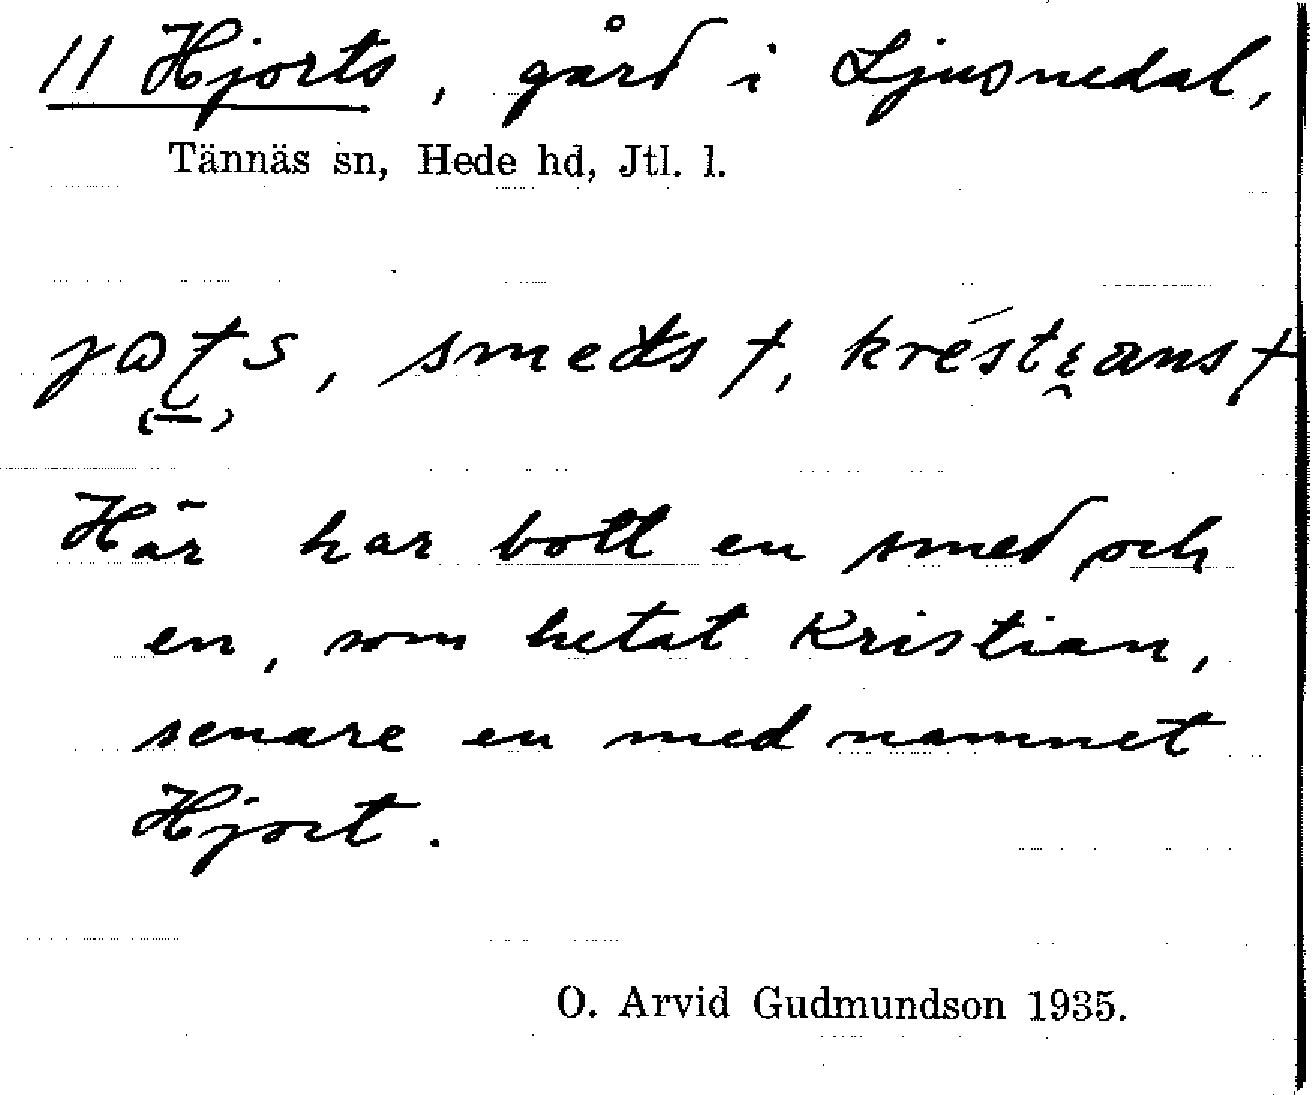 11 Hjorts, gård i Ljusnedal,
Tännäs sn, Hede hd, Jtl. l.
smeds †,
Här har bott en smed och
en, som hetat Kristian,
senare en med namnet
Hjort.
O. Arvid Gudmundson 1935.